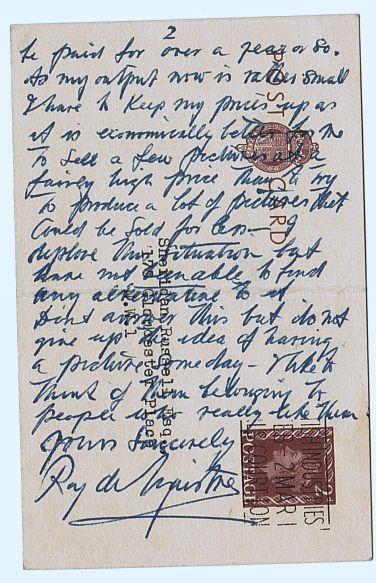 2
be paid for over a year or so.
As my output now is rather small
I have to keep my prices up as
it is economically better for me
to sell a few pictures at a
fairly high price than to try
to produce a lot of pictures that
could be sold for less — I
deplore this situation but
have not been able to find
any alternative to it
Dont answer this but do not
give up idea of having
a picture someday — I like to
think of them belonging to
people who really like them
Yours Sincerely
Roy de Maistre
POST CARD
Sheridan Russell Esqu
Gloucester Place
W 1
POSTAGE
INDUSTRIES
2 MAR